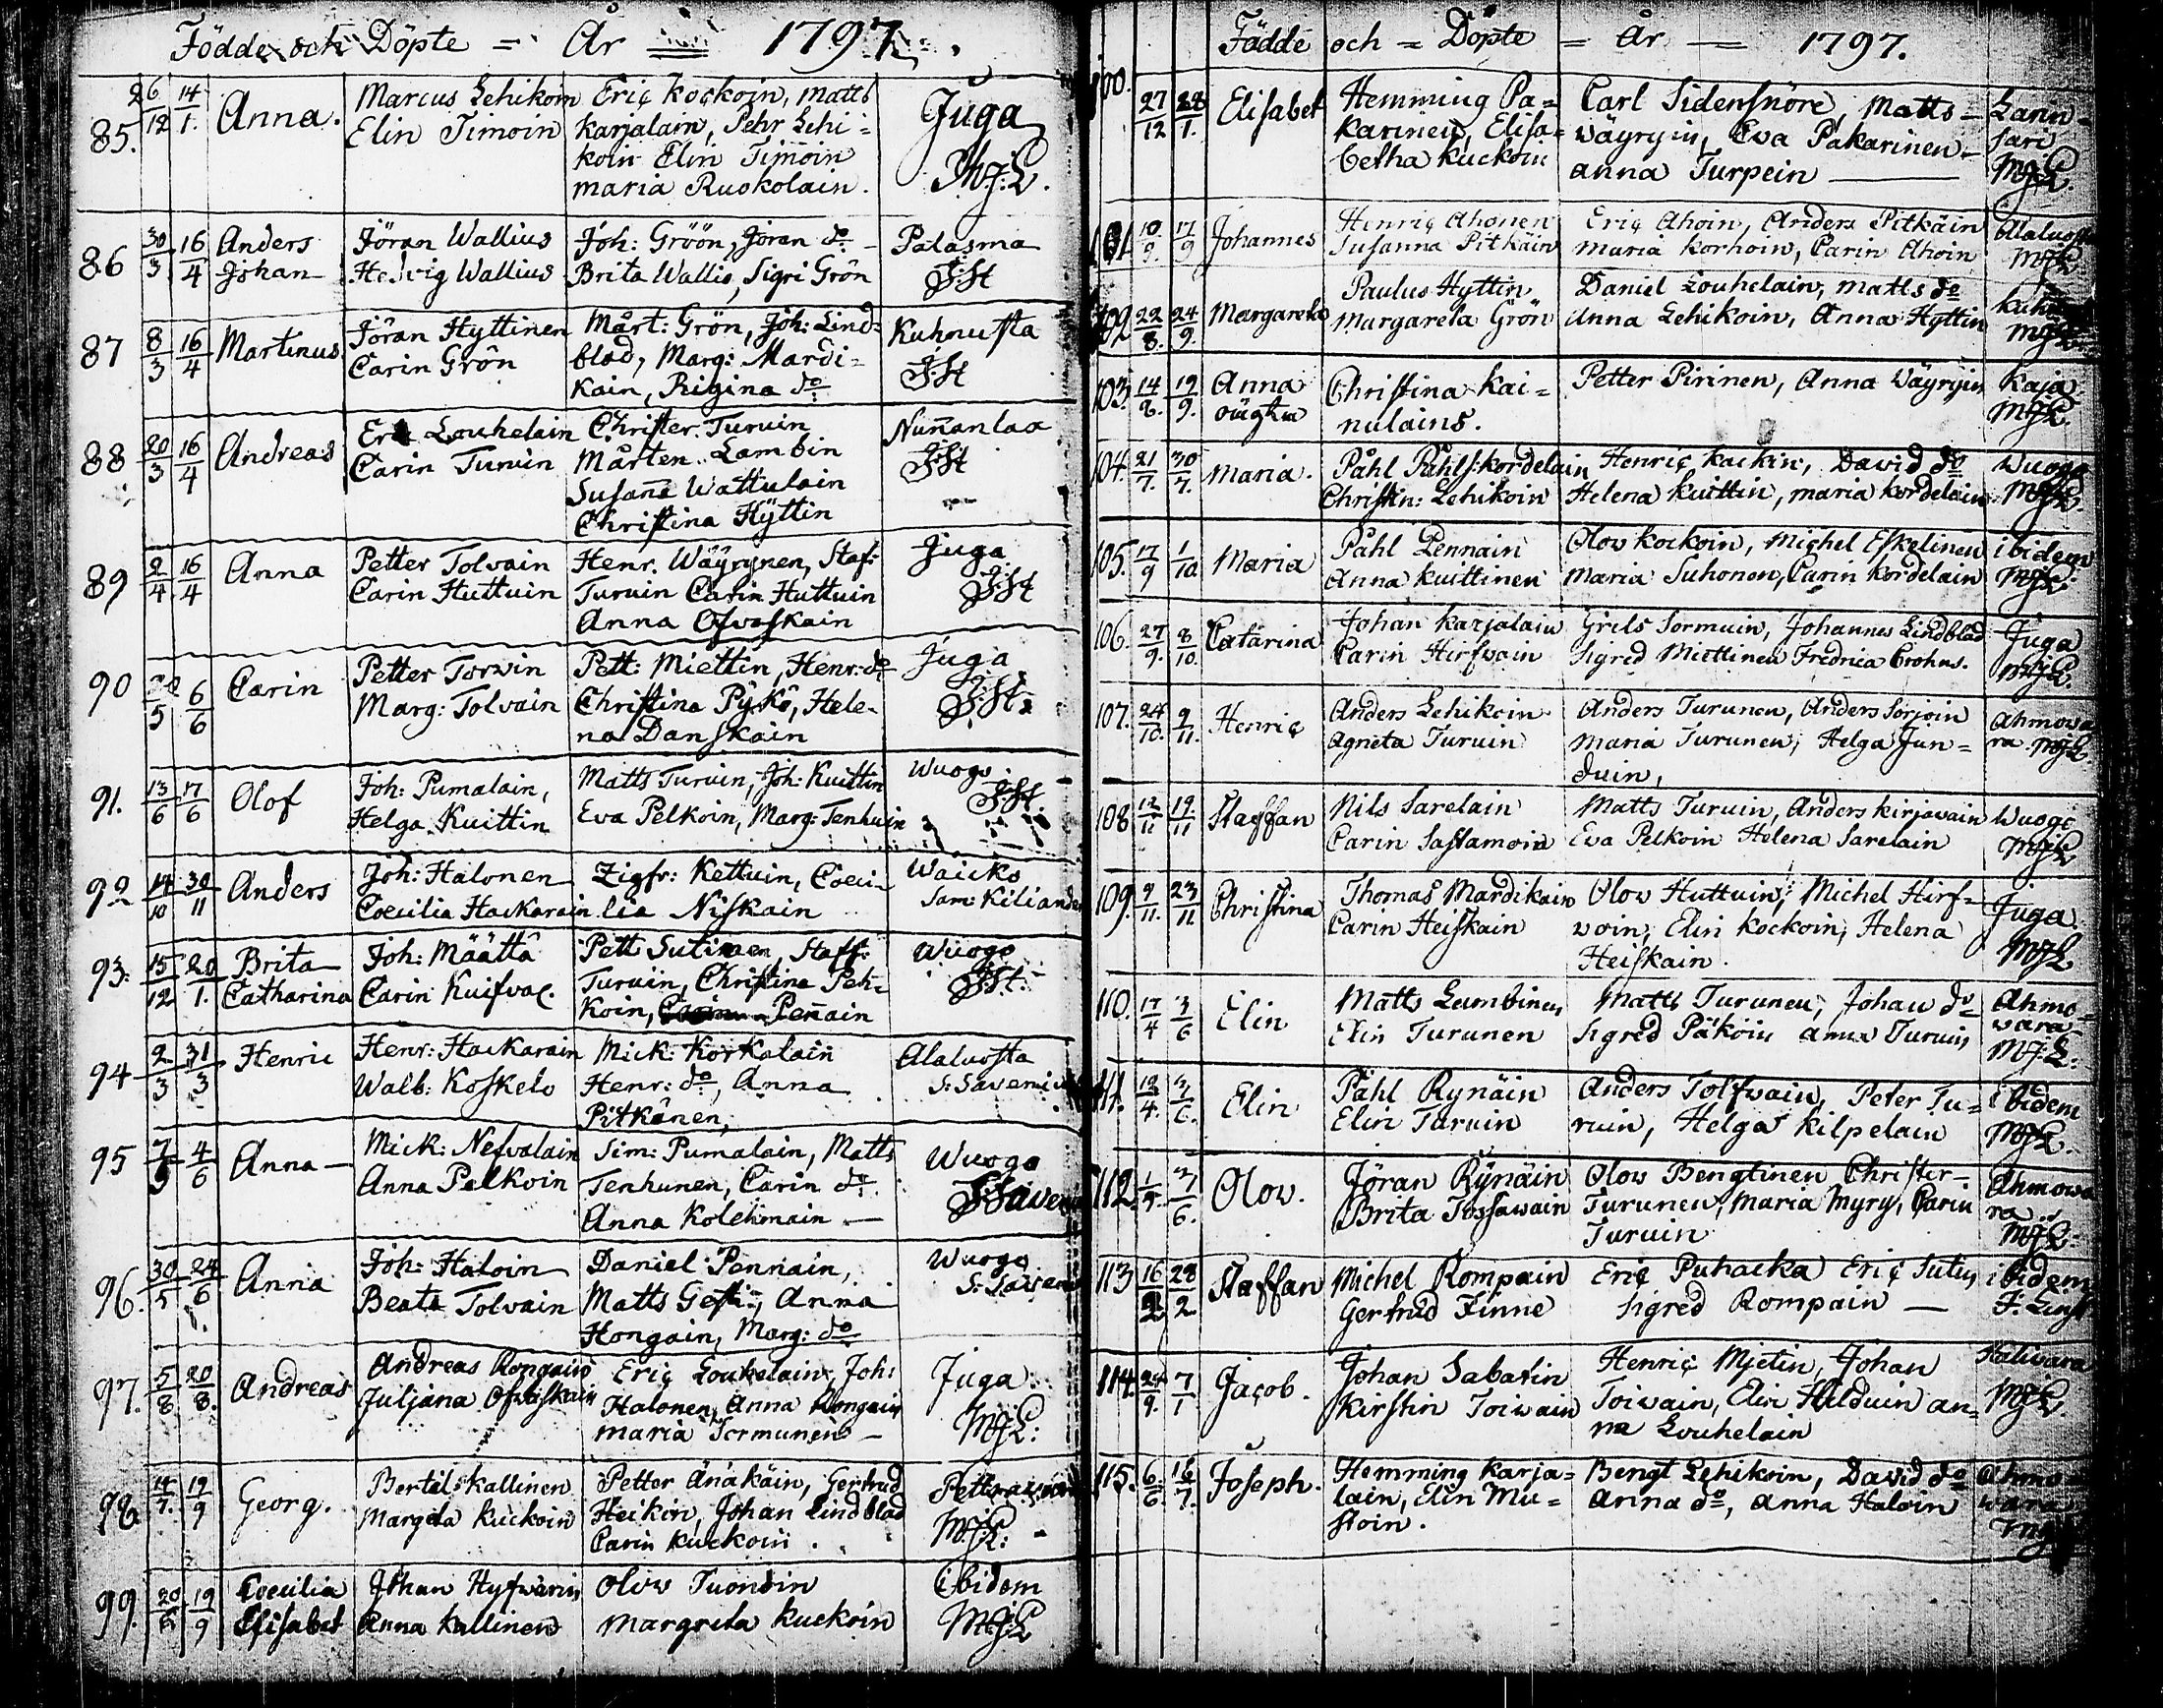 Födde och Döpte = År = 1797.
85. 26/12 14/1. Anna. Marcus Lehikoin Eric Kockoin, Matts Juga
Elin Timoin Karjalain, Pehr Lehi=
koin Elin Timoin M.J.L.
Maria Ruokolain.
86 30/3 16/4 Anders Jöran Wallius Joh: Gröön, Jöran do Palasma
Johan Hedvig Wallius Brita Wallis, Sigri Grön J:St
87 8/3 16/4 Martinus Jöran Hyttinen Mårt: Grön, Joh: Lind= Kuhnusta
Carin Grön blad, Marg: Mardi= J:St
kain, Rigina do
88 20/3 16/4 Andreas Eric Louhelain Christer Turuin Nunanlax
Carin Turuin Mårten Lambin J:St
Susana Wattulain
Christina Hyttin
89 2/4 16/4 Anna Petter Tolvain Henr. Wäyrynen, Staf: Juga
Carin Huttuin Turuin Carin Huttuin J:St
Anna Ofvaskain
90 20/5 6/6 Carin Petter Torwin Pett: Miettin, Henr: do Juga
Marg: Tolvain Christina Pykö, Hele= J:St
na Danskain
91. 13/6 17/6 Olof Joh: Pumalain, Matts Turuin, Joh: Kuittin Wuogo
Helga Kuittin Eva Pelkoin, Marg: Tenhuin J:St.
92 14/10 30/11 Anders Joh: Halonen Zigfr: Kettuin, Coeci= Waicko
Coecilia Hackarain lia Niskain Sam: Kiliander
93. 15/12 20/1. Brita Joh: Määttä Pett Sutinen, Staff: Wuogo
Catharina Carin Kuifval. Turuin, Christina Peh= J:St.
koin, Penain
94 2/3 31/3 Henric Henr: Hackarain Mick: Korkalain Alaluosta
Walb: Koskelo Henr: do, Anna S: Saveni
Pitkänen,
95 7/5 4/6 Anna Mick: Nefvalain Sim: Pumalain, Matts Wuogo
Anna Pelkoin Tenhunen, Carin do S:Saven
Anna Kolehmain
96. 30/5 24/6 Anna Joh: Haloin Daniel Pennain, Wuogo
Beata Tolvain Matts Gest:, Anna S: Saven
Hongain, Marg: do
97. 5/8 20/8. Andreas Andreas Rongain Eric Louhelain, Joh: Juga
Juljana Ofwaskain Halonen, Anna Rongain M.J.L:
Maria Tormunen
98. 14/7. 19/9 Georg. Bertil Kallinen Petter Änäkäin, Gertrud
Margeta Kuckoin Heikin, Johan Lindblad M.J.L:
Carin Kuckoin.
99. 20/8 19/9 Coecilia Johan Hyfwärin Olow Tuondin ibidem
Elisabet Anna Kallinen Margreta Kuckoin M.J.L
Födde och = Döpte = År = 1797.
100. 27/12 28/1. Elisabet Hemming Pa= Carl Sidensnöre, Matts Larin=
karinen, Elisa= Wäyryin, Eva Pakarinen sari
betha Kuckoin Anna Turpein M.J.L.
101 10/9. 17/9 Johannes Henric Ahonen Eric Ahoin, Anders Pitkäin Alaluosta
Susanna Pitkäin Maria Korhoin, Carin Ahoin M.J.L
102 22/8. 24/9. Margareta Paulus Hyttin Daniel Louhelain, Matts do
Margareta Grön Anna Lehikoin, Anna Hyttin M.J.L
103. 14/8. 19/9. Anna Christina Kai= Petter Pirinen, Anna Wäyryin Kaja
oägta nulains. M.J.L.
104. 21/7. 30/7. Maria. Påhl Påhls: Kordelain Henric Kackin, David do Wuogo
Christin: Lehikoin Helena Kuittin, Maria Kordelain M.J.L
105. 17/9 1/10 Maria Påhl Pennain Olow Kockoin, Michel Eskelinen ibidem
Anna Kuittinen Maria Suhonen, Carin Kordelain M.J.L.
106. 27/9. 8/10. Catarina Johan Karjalain Grels Sormuin, Johannes Lindblad Juga
Carin Hirfwain Sigred Miettinen Fredrica Crohns. M.J.L.
107. 24/10. 9/11. Henric Anders Lehikoin Anders Turunen, Anders Sorjoin Ahmowa
Agneta Turuin Maria Turunen, Helga Jun= ra M.J.L.
duin,
108 12/11 19/11 Staffan Nils Sarelain Matts Turuin, Anders Kirjavain Wuogo
Carin Sastamoin Eva Pelkoin Helena Sarelain M.J.L
109. 9/11. 23/11 Christina Thomas Mardikain Olow Huttuin, Michel Hirf= Juga
Carin Heiskain woin, Elin Kockoin, Helena
Heiskain. M.J.L
110. 17/4 3/6 Elin Matts Lambinen Matts Turunen, Johan do Ahmo=
Elin Turunen Sigred Päköin Anna Turuin wara
M.J.L.
111. 12/4. 3/6. Elin Påhl Rynäin Anders Tolfwain, Peter Tu= ibidem
Elin Turuin ruin, Helga Kilpelain M.J.L.
112 1/5. 3/6. Olow. Jöran Rynäin Olow Bengtinen Christer Ahmowa
Brita Tossawain Turunen, Maria Myry, Carin ra
Turuin M.J.L.
113 16/2 28/2 Staffan Michel Rompain Eric Puhacka Eric Sutin ibidem
Gertrud Finne Sigred Rompain
114. 24/9. 7/1 Jacob. Johan Sabatin Henric Mjetin, Johan Halivara
Kirstin Toiwain Toiwain, Elin Halduin an= M.J.L.
na Louhelain
115. 6/6. 16/7. Joseph. Hemming Karja= Bengt Lehikoin, David do Ahmo=
lain, Elin Mu= Anna do, Anna Haloin wara
stoin.